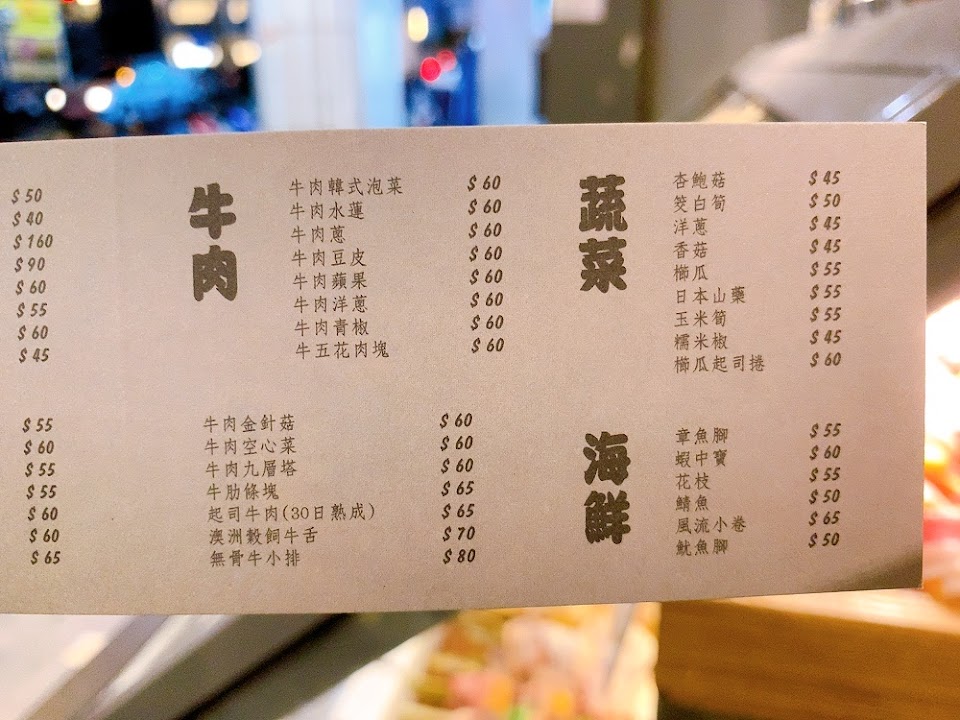 $50
$40
$160
$90
$60
$55
$60
$45
$55
$60
$55
$55
$60
$60
$65
牛肉
牛肉韓式泡菜 $60
牛肉水蓮 $60
牛肉蔥 $60
牛肉豆皮 $60
牛肉蘋果 $60
牛肉洋蔥 $60
牛肉青椒 $60
牛五花肉塊 $60
牛肉金針菇 $60
牛肉空心菜 $60
牛肉九層塔 $60
牛肋條塊 $65
起司牛肉(30日熟成) $65
澳洲穀飼牛舌 $70
無骨牛小排 $80
蔬菜
杏鮑菇 $45
筊白筍 $50
洋蔥 $45
香菇 $45
櫛瓜 $55
日本山藥 $55
玉米筍 $55
糯米椒 $45
櫛瓜起司捲 $60
海鮮
章魚腳 $55
蝦中寶 $60
花枝 $55
鯖魚 $50
風流小卷 $65
魷魚腳 $50